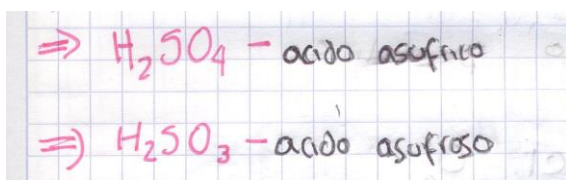 ⇒ H₂SO₄ - acido asufrico
⇒ H₂SO₃ - acido asufroso